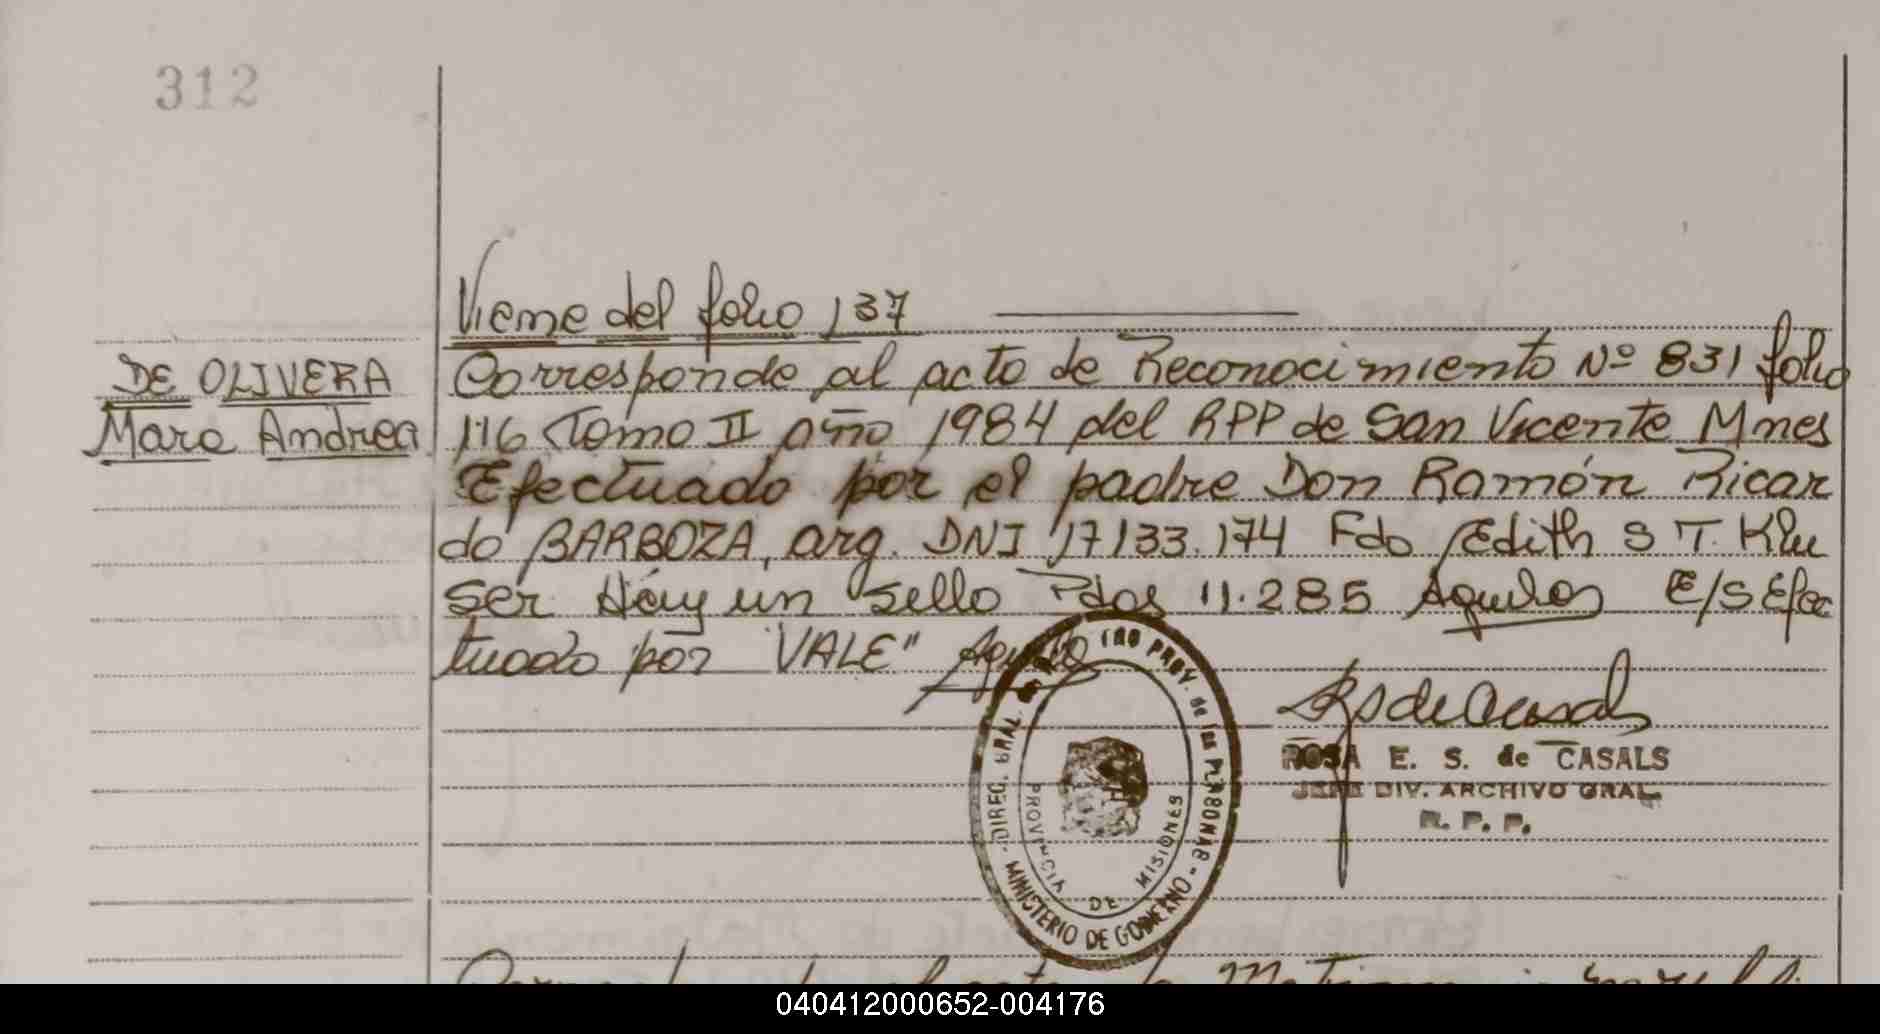 312
Viene del folio 137
DE OLIVERA
Mara Andrea
Corresponde al acto de Reconocimiento Nº 831 folio
116 Tomo II año 1984 del RPP de San Vicente Mnes
Efectuado por el padre Don Ramón Ricar
do BARBOZA, arg. DNI 17133.174 Fdo Edith S T. Klu
ser Hay un sello Pdos 11.285 E/S Efec
tuado por "VALE"
DIREC. GRAL. PROV. de las PERSONAS
MINISTERIO DE GOBIERNO
PROVINCIA DE MISIONES
RS de Casals
ROSA E. S. de CASALS
JEFE DIV. ARCHIVO GRAL.
R. P. P.
040412000652-004176